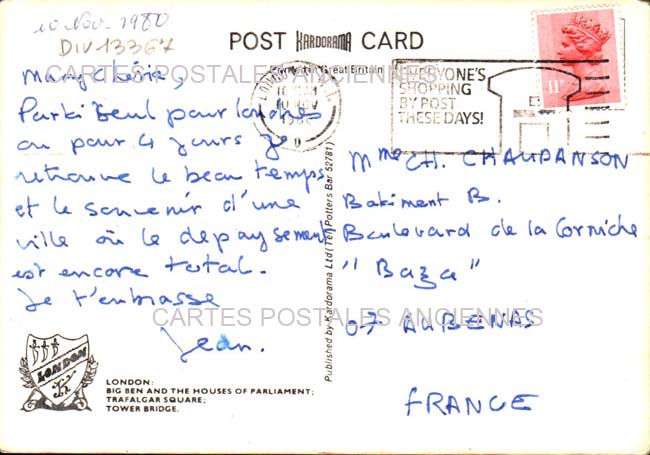 10 Nov 1980
DIV13367
POST KARDORAMA CARD
Printed in Great Britain
CARTES POSTALES ANCIENNES
LONDON
10 NOV
1980
EVERYONE'S
SHOPPING
BY POST
THESE DAYS!
11P
Parti seul pour Londres
ou pour 4 jours je
retrouve le beau temps
et le souvenir d'une
ville où le depaysement
est encore total.
Je t'embrasse
Jean.
Mme CH. CHAUDANSON
Batiment B.
Boulevard de la Corniche
"Baza"
07 AUBENAS
FRANCE
CARTES POSTALES ANCIENNES
Published by Kardorama Ltd (Tel Potters Bar 52781)
LONDON
LONDON:
BIG BEN AND THE HOUSES OF PARLIAMENT;
TRAFALGAR SQUARE;
TOWER BRIDGE.